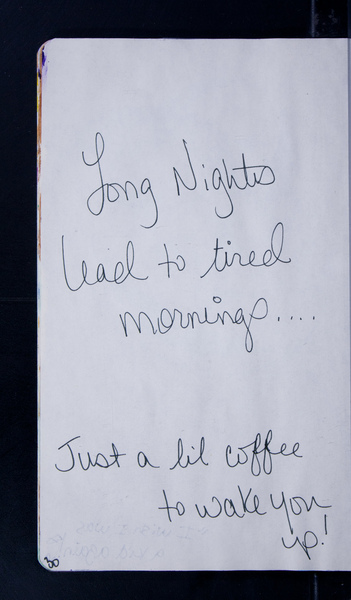 Long Nights
lead to tired
mornings....
Just a lil coffee
to wake you
up!
30